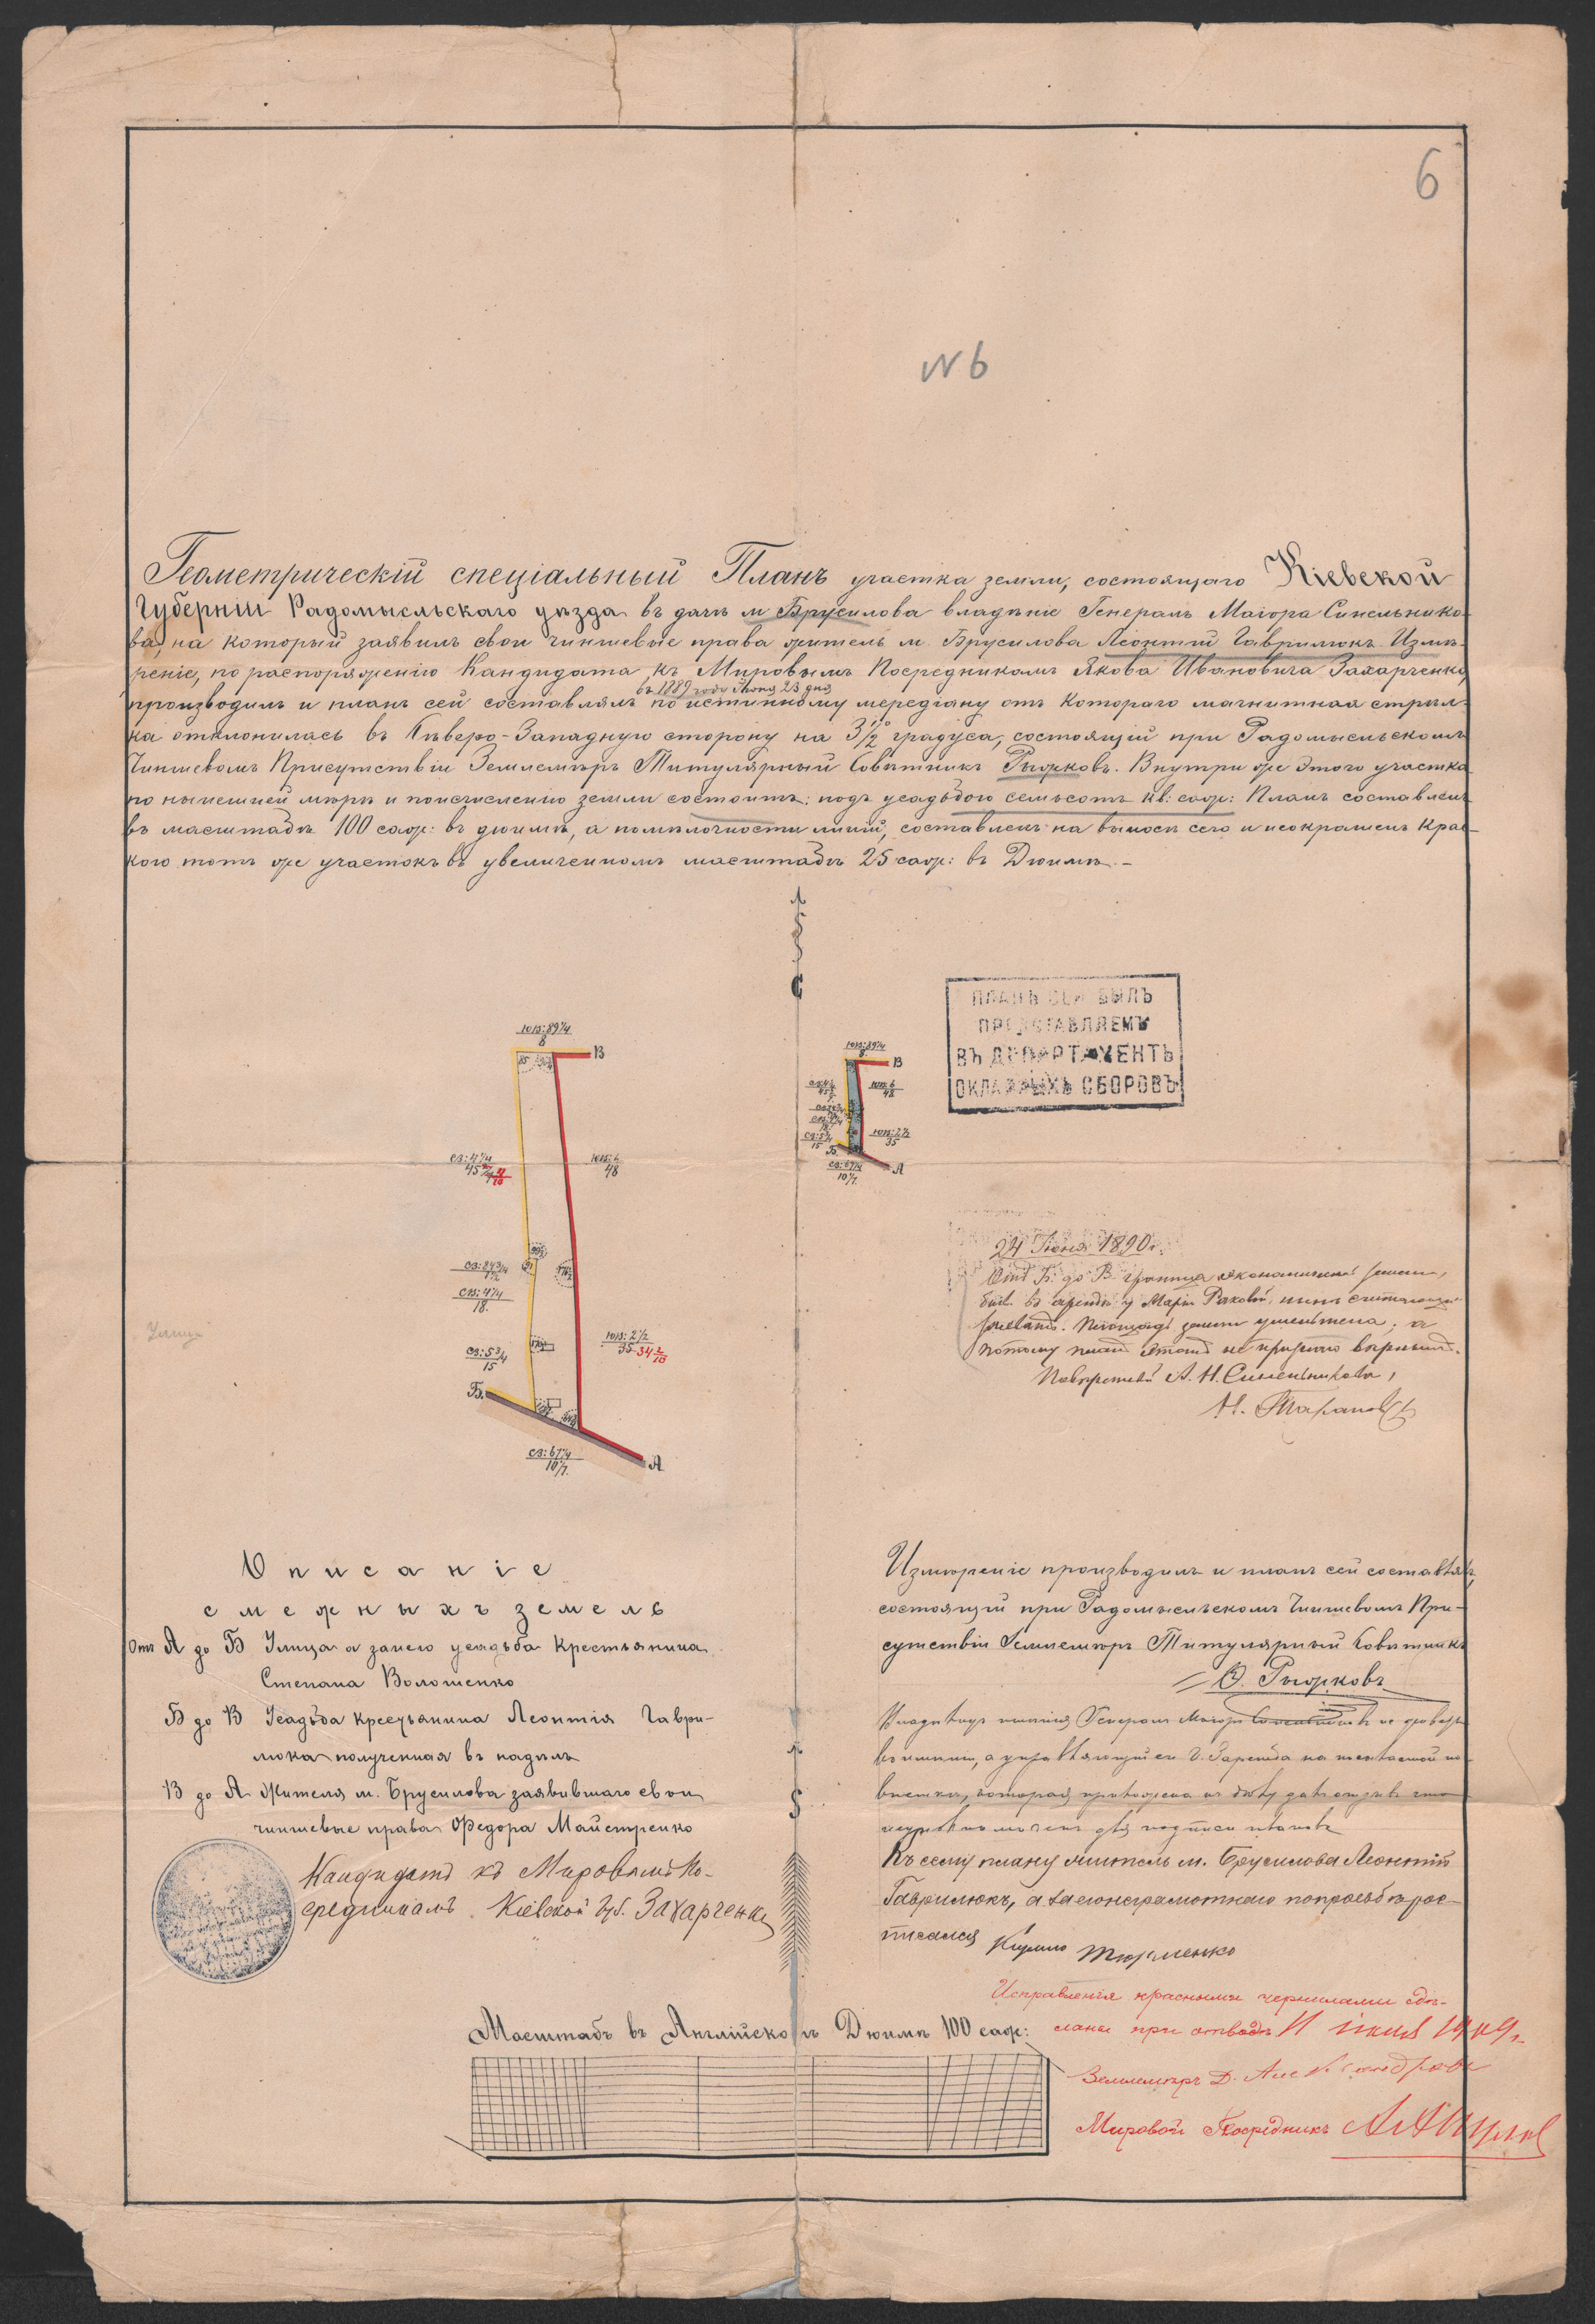 6
№ 6
Геометрическій спеціальный Планъ участка земли, состоящаго Кіевской
Губерніи Радомысльскаго уѣзда въ дачѣ м Брусилова владѣніе Генералъ Маіора Синельнико-
ва, на который заявилъ свои чиншевые права житель м. Брусилова Леонтій Гаврилюкъ. Измѣ-
реніе, по распоряженію Кандидата къ Мировымъ Посредникомъ Якова Ивановича Захарченко,
въ 1889 году Іюня 23 дня
производилъ и планъ сей составлялъ по истинному мередіану отъ котораго магнитная стрѣл-
ка отклонилась въ Сѣверо-Западную сторону на 3½° градуса, состоящій при Радомысльскомъ
Чиншевомъ Присутствіи Землемѣръ Титулярный Совѣтникъ Рыжковъ. Внутри же этого участка
по нынешней мѣрѣ и поисчисленію земли состоитъ: подъ усадьбою семьсотъ кв: саж: Планъ составленъ
въ масштабѣ 100 саж: въ дюймѣ, а помѣлочности линій, составленъ на выноскѣ сего и неокрашенъ крас-
кою тотъ же участокъ въ увеличенномъ масштабѣ 25 саж: въ Дюймѣ.-
С
ПЛАНЪ СЕЙ БЫЛЪ
ПРЕДСТАВЛЯЕМЪ
ВЪ ДЕПАРТАМЕНТЪ
ОКЛАДНЫХЪ СБОРОВЪ
ЮВ: 89¼
8
В
СЗ: 4¼
45
ЮВ: 6
48
СЗ: 84¾
1½
СВ: 4¼
18.
ЮВ: 2½
35 34 2/10
СЗ: 5¾
15
Б.
СЗ: 67¼
10 1/7.
А
ЮВ: 89¼
8
В
ЮВ: 6
48
ЮВ: 2½
35
СЗ: 5¾
15
Б.
СЗ: 67¼
10 1/7.
А
Улица
24 Іюня 1890 г.
Отъ Б. до В. граница экономической земли,
бывш. въ арендѣ у Маріи Раковой, нынѣ
Площадь земли уменьшена; а
потому планъ этотъ не признаю вѣрнымъ.
Повѣренный А. Н. Синельникова,
Описаніе
смежныхъ земель
Отъ А до Б Улица а занею усадьба Крестьянина
Степана Волошенко
Б до В Усадьба крестьянина Леонтія Гаври-
люка полученная въ надѣлъ
В до А Жителя м. Брусилова заявившаго свои
чиншевые права Федора Майстренко
Кандидатъ къ Мировымъ По-
средникамъ Кіевской губ. Захарченко
Измѣреніе производилъ и планъ сей составлялъ,
состоящій при Радомысльскомъ Чиншевомъ При-
сутствіи Землемѣръ Титулярный Совѣтникъ
Ѳ. Рыжковъ
Владѣлецъ имѣнія Генералъ Маіоръ
а управляющій его
для подписи плановъ
Къ сему плану житель м. Брусилова Леонтій
Гаврилюкъ, а за егонеграмотнаго попросьбѣ рос-
писался
Кирило
Исправленія красными чернилами сдѣ-
ланы при отводѣ 11 іюня 1909 г.
Землемѣръ Д. Александровъ
Мировой Посредникъ
Масштабъ въ Англійскомъ Дюймѣ 100 саж: